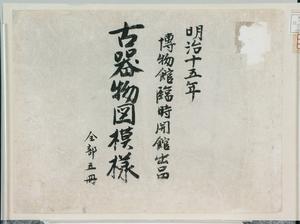 明治十五年
博物館臨時開館出品
古器物図模様
全部五冊